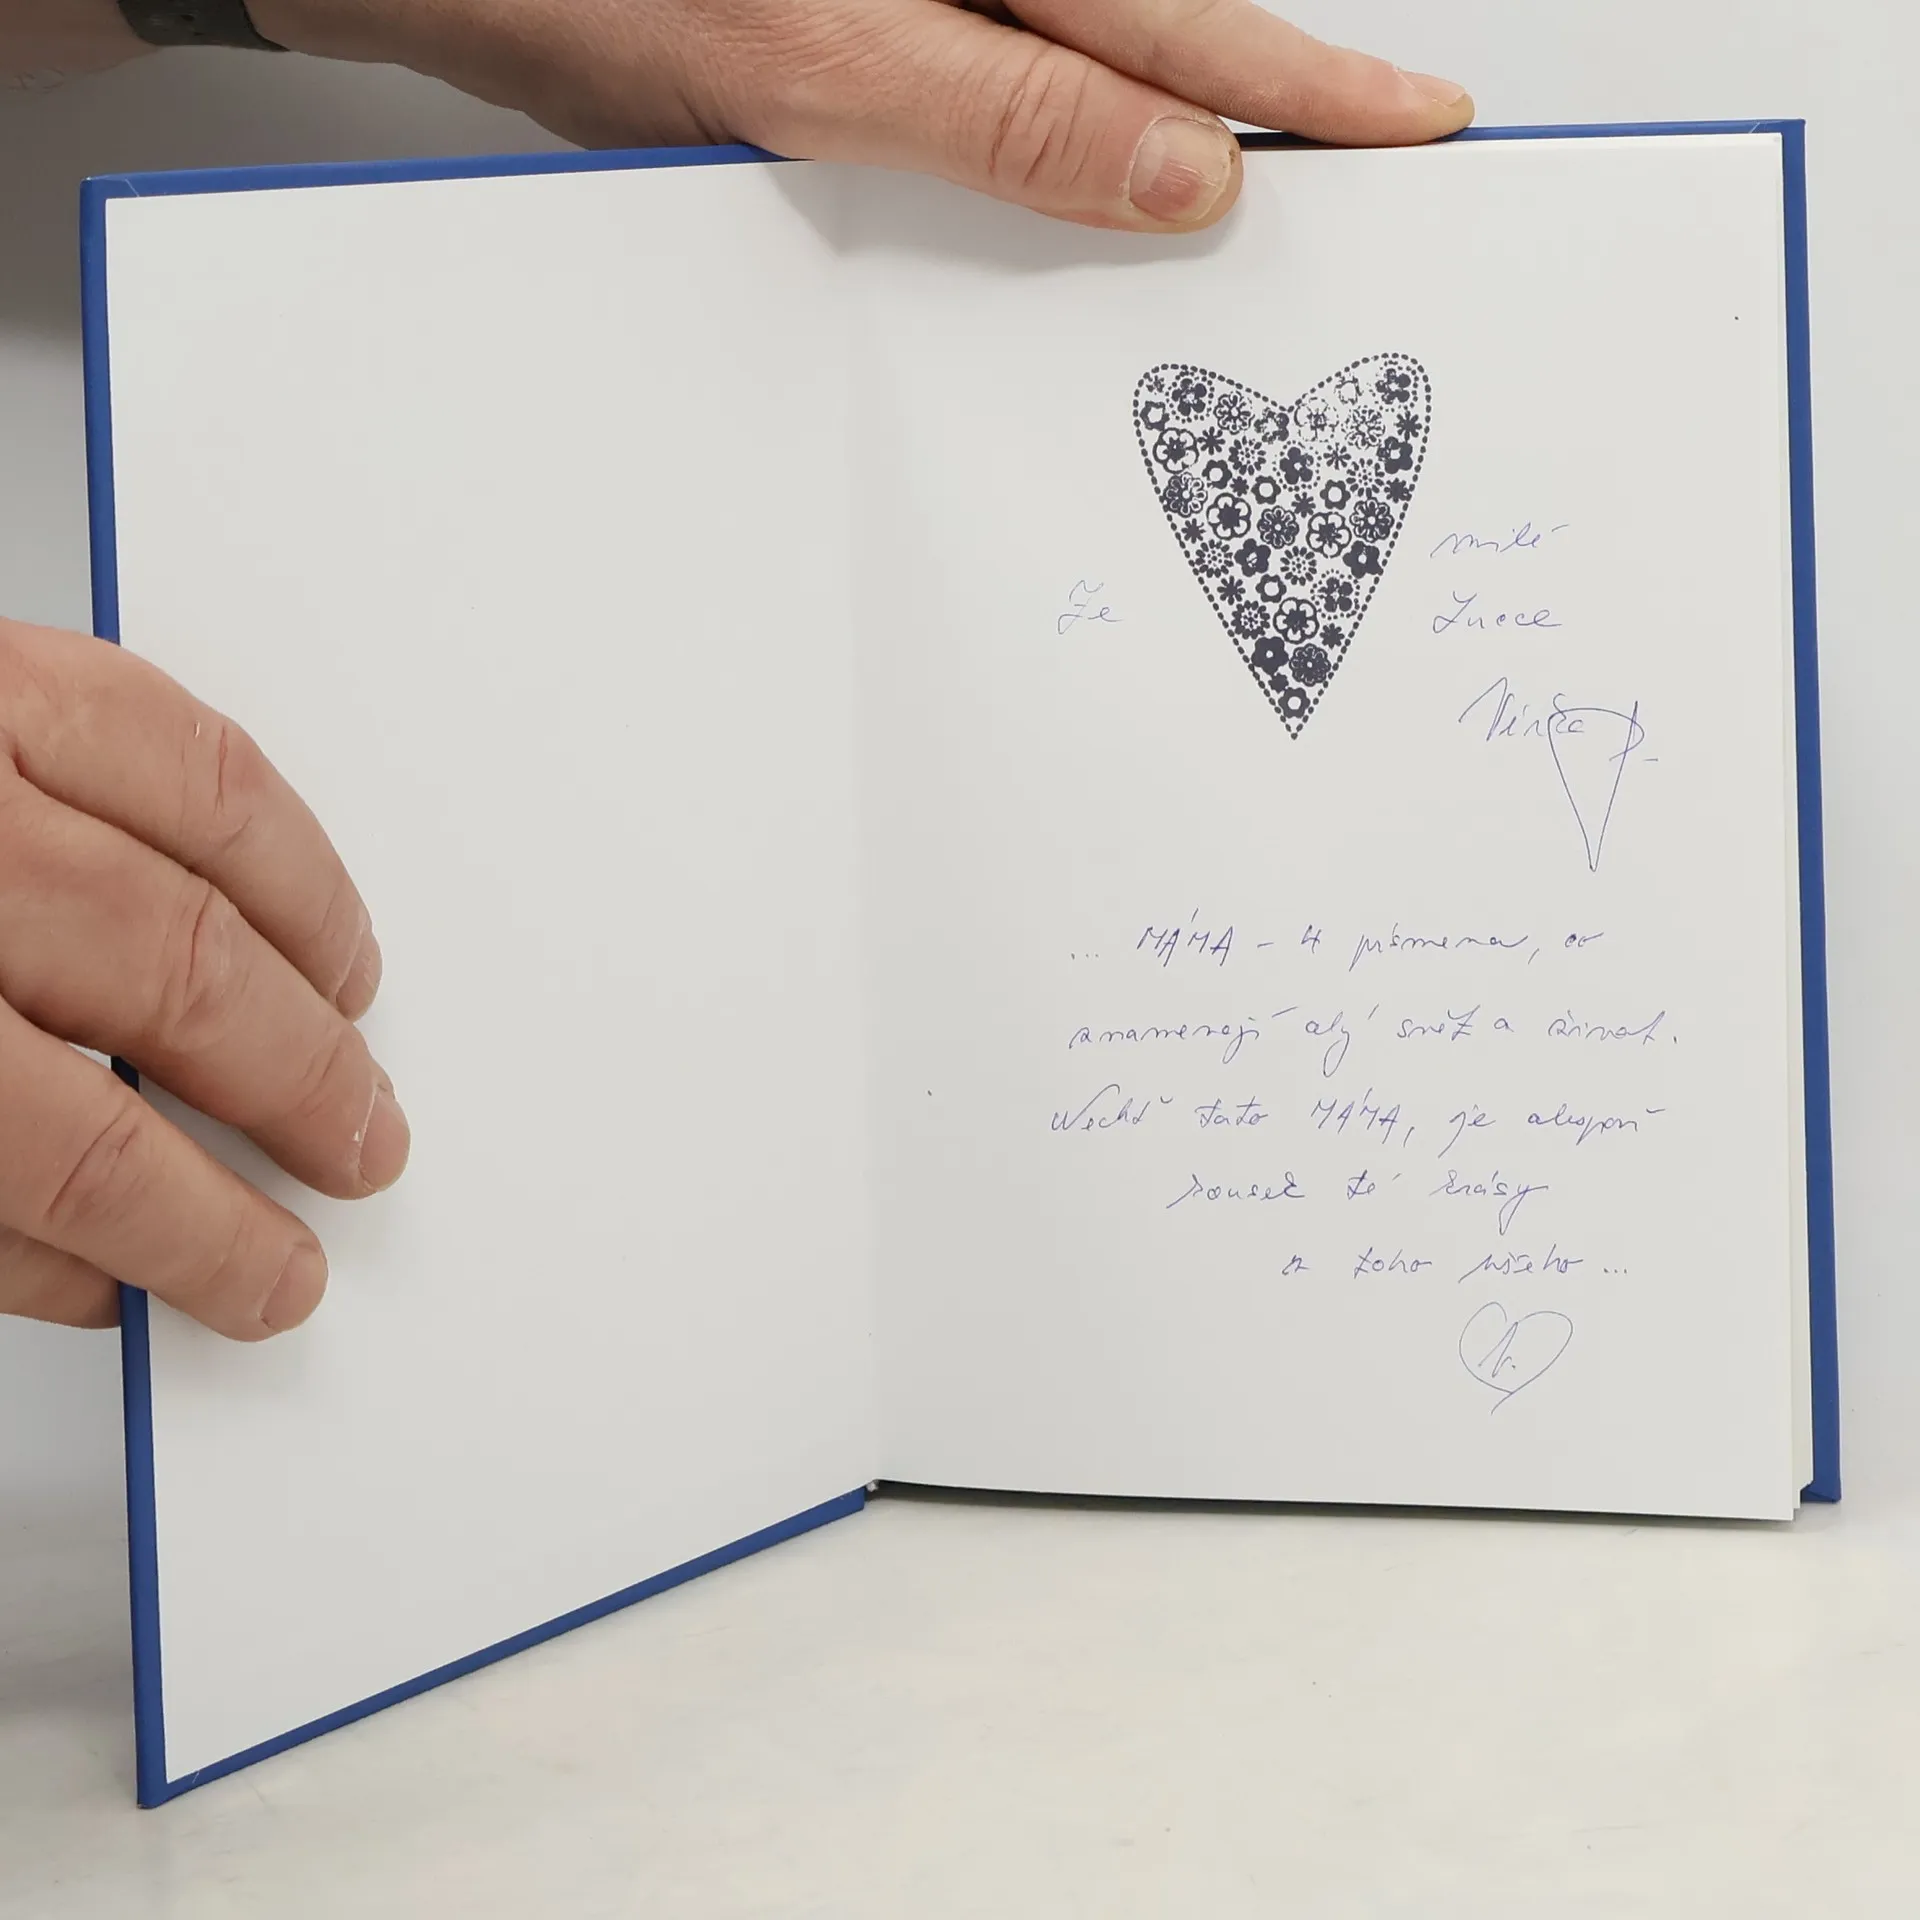 Ze
milé
Lucce
Věrka P.
... MÁMA - 4 písmena, co
znamenají celý svět a život.
Nechť tato MÁMA, je alespoň
kousek té krásy
z toho všeho ...
V.